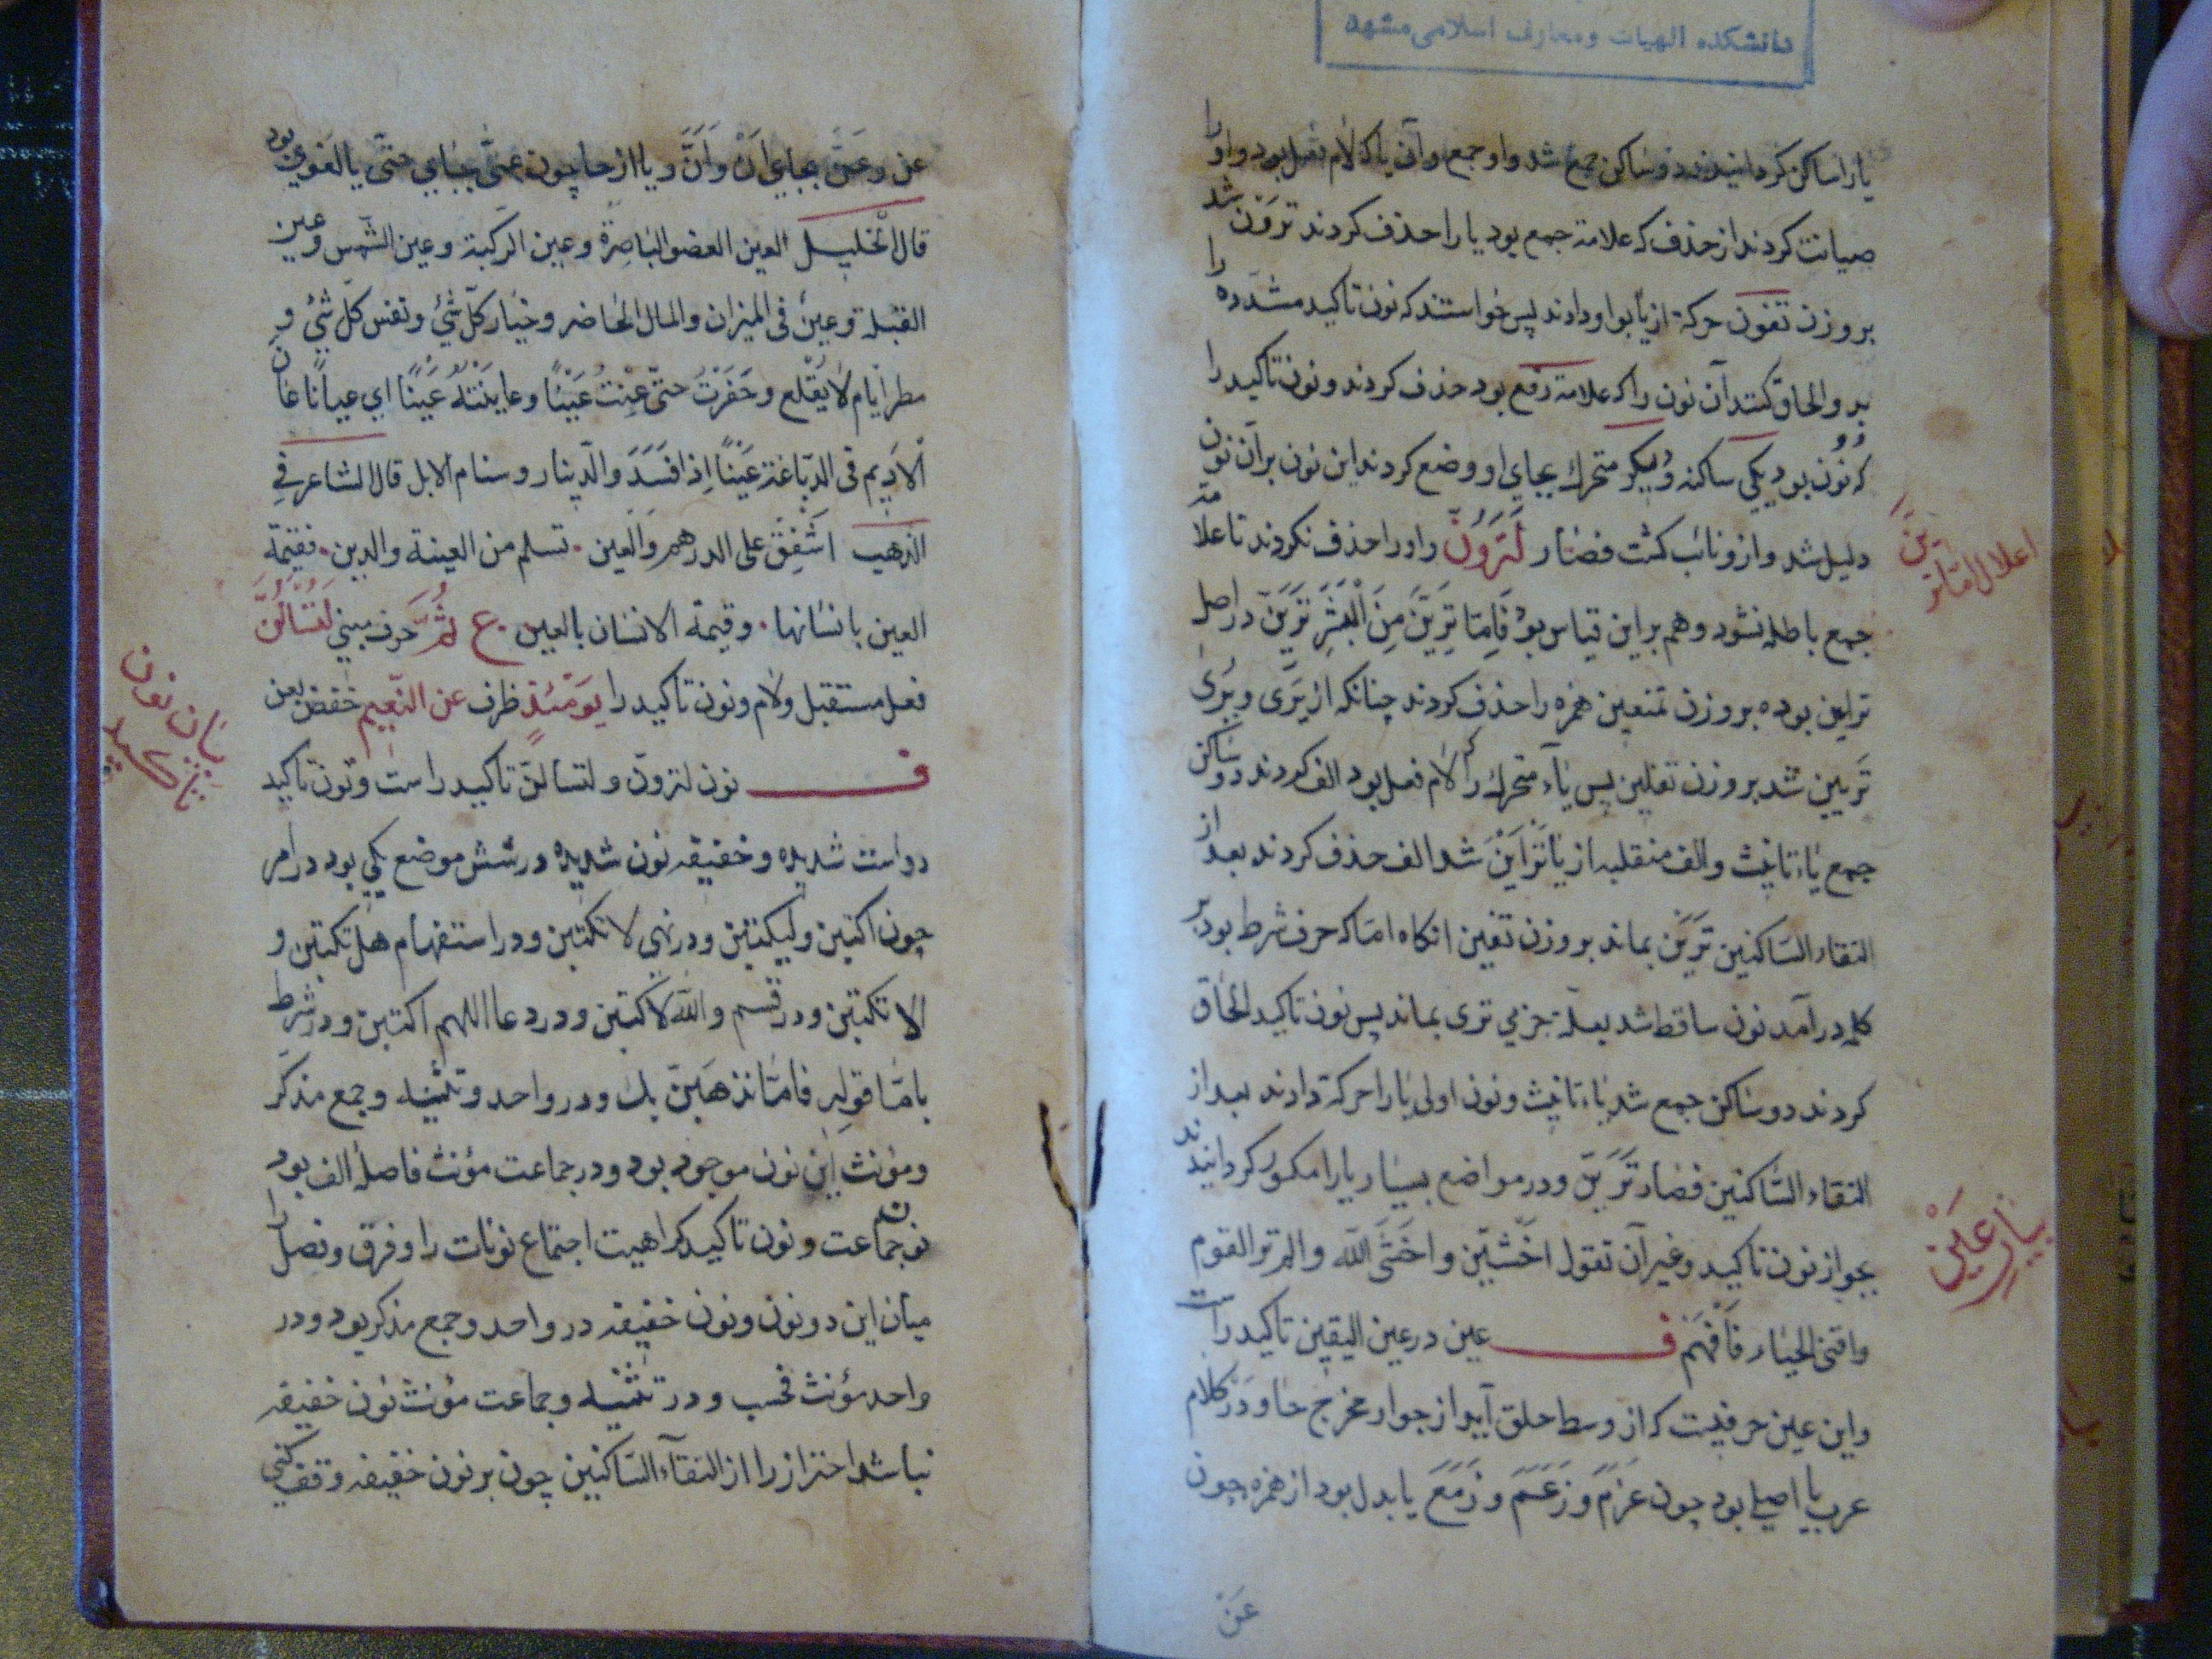 دانشکده الهیات و معارف اسلامی مشهد
یا را ساکن کردانیدند دو ساکن جمع شد واو جمع و آن یا که لام فعل بود واو را
صیانت کردند از حذف که علامة جمع بود یا را حذف کردند ترون شد
بر وزن تفون حرکة از یا بواو دادند پس خواستند که نون تاکید مشدده را
برو الحاق کنند آن نون را که علامة رفع بود حذف کردند و نون تاکید را
که دو نون بود یکی ساکنه و دیکر متحرک بجای او وضع کردند این نون بر آن نون
دلیل شد و ازو نائب کشت فصار لَتَرَوُنَّ واو را حذف نکردند تا علامة
جمع باطله نشود و هم برین قیاس بود فَاِمّا تَرَیِنَّ مِنَ الْبَشَرِ تَرَیِنَّ در اصل
ترایین بوده بر وزن تمنعین همزه را حذف کردند چنانکه از یَرَی و یُرَی
تَرَیین شد بر وزن تفلین پس یآء متحرک را که لام فعل بود الف کردند دو ساکن
جمع یاء تانیث و الف منقلبه از یا تَرَایْنَ شد الف حذف کردند بعد از
التقاء السّاکنین تَرَیْنَ بماند بر وزن تفین انکاه امّا که حرف شرط بود بر
کلمه در آمد نون ساقط شد بعلّة جزمی تری بماند پس نون تاکید الحاق
کردند دو ساکن جمع شد یاء تانیث و نون اولی یا را حرکة دادند بعد از
التقاء السّاکنین فصار تَرَیِنَّ و در مواضع بسیار یا را مکسور کردانیدند
بجواز نون تاکید و غیر آن تقول اخشیِنّ و اخشَی الله و الم تر القوم
واقنی الحیاء فَافْهَمْ ف عین در عین الیقین تاکید راست
و این عین حرفیست که از وسط حلق آید از جوار مخرج حا و در کلام
عرب یا اصلی بود چون عَزَمَ و زَعَمَ و زَمَعَ یا بدل بود از همزه چون
عَنْ
اعلال امّا ترینّ
بیان عَیْن
عن و عَنَّ بجای اَنْ و اَنَّ و یا از حا چون عتّی بجای حتّی یا لغوی بود
قال الخلیل العین العضو الباصِرة و عین الرکبة و عین الشّمس و عین
القبلة و عینٌ فی المیزان و المال الحاضر و خیار کلّ شَیْء و نفس کلّ شَیْء و
مطر ایام لا یُقْلع و حَفَرْتُ حتّی عِنْتُ عَیْنًا و عایَنْتُهُ عَیْنًا ای عیانًا عان
الادیم فی الدّباغة عَیَنًا اِذا فَسَدَ و الدّینار و سنام الابل قال الشاعر فی
الذهب اَشْفِقْ علی الدرهم و العین . تسلم من العینة و الدین . فقیمة
العین بانسانها . و قیمة الانسان بالعین . ع ثُمَّ حرف مبنی لَتُسْأَلُنَّ
فعل مستقبل و لام و نون تاکید را یَوْمَئِذٍ ظرف عن النَّعیم خفض بعن
ف نون لترونّ و لتسألنّ تاکید راست و نون تاکید
دو است شدیده و خفیفه نون شدیده در شش موضع یکی بود در امر
چون اکتبن و لیکتبن و در نهی لا تکتبن و در استفهام هل تکتبن و
الا تکتبن و در قسم و الله لاکتبن و در دعا اللهم اکتبن و در شرط
با مّا قوله فامّا نذهبَنّ بک و در واحد و تثنیه و جمع مذکّر
و مؤنث این نون موجود بود و در جماعت مؤنث فاصله الف بود
نون جماعت و نون تاکید کراهیت اجتماع نونات را و فرق و فصل را
میان این دو نون و نون خفیفه در واحد و جمع مذکر بود و در
واحد مؤنث فحسب و در تثنیه و جماعت مؤنث نون خفیفه
نباشد احتراز را از التقآء السّاکنین چون بر نون خفیفه وقف کنی
بیان نون تاکید